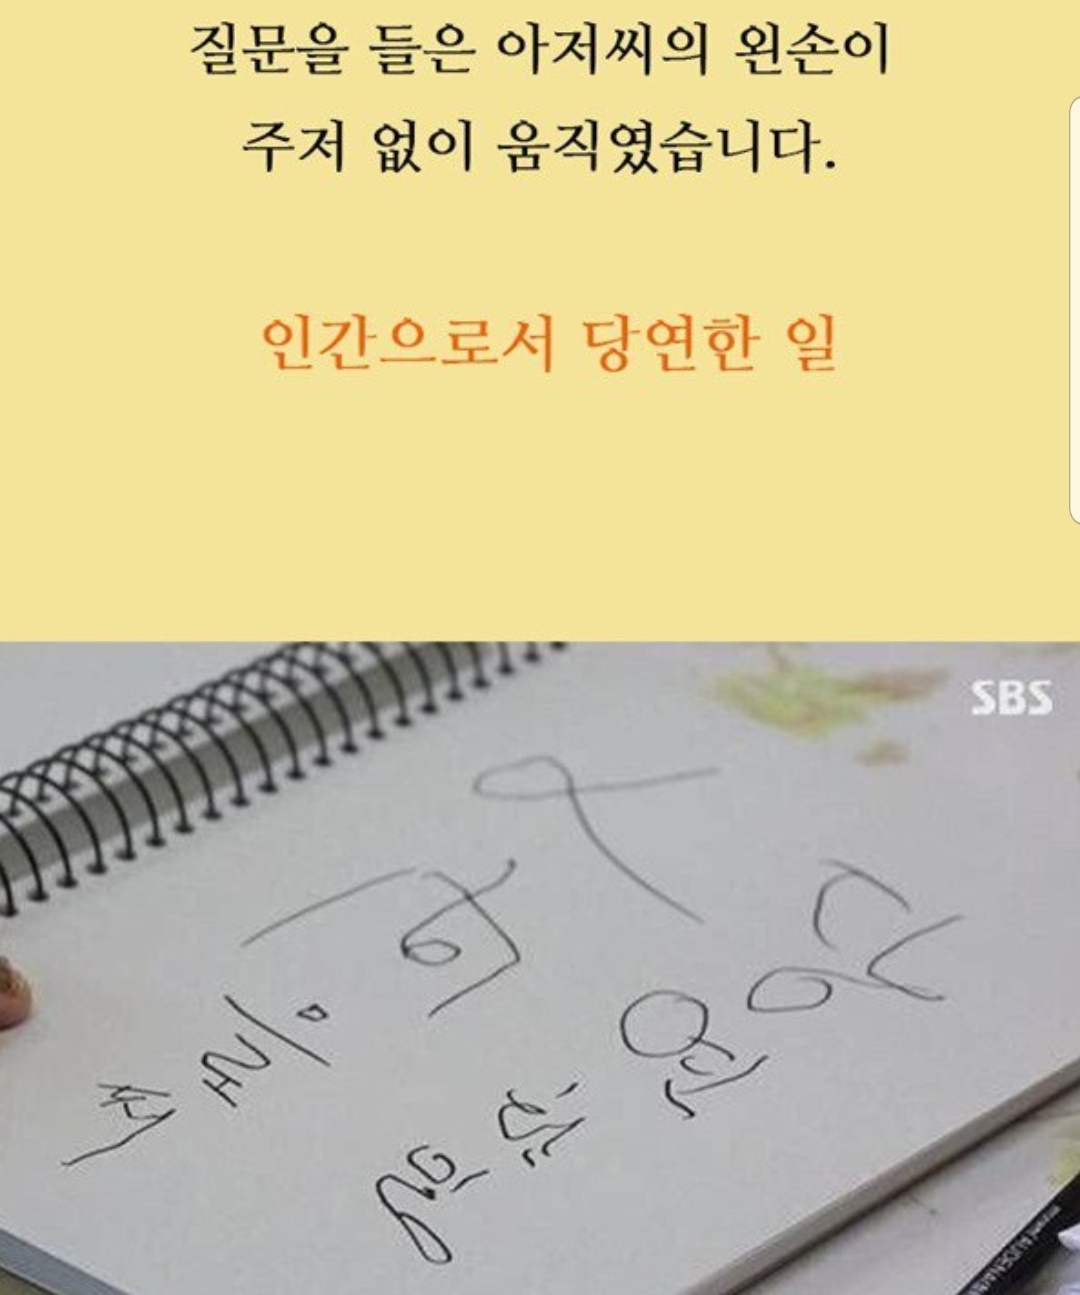 질문을 들은 아저씨의 왼손이
주저 없이 움직였습니다.
인간으로서 당연한 일
SBS
당연한 일